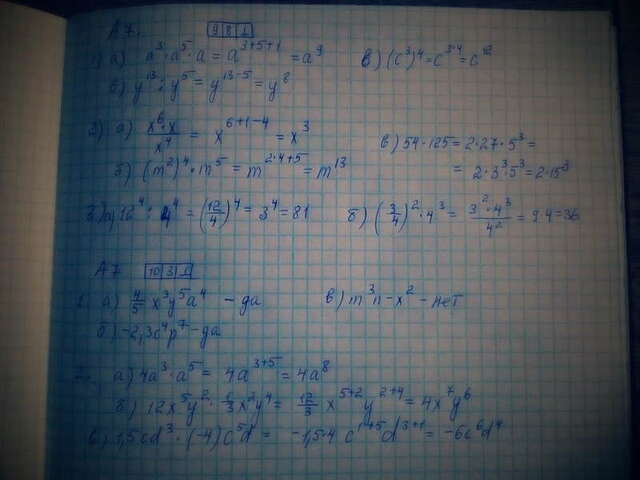 А7. 9 8 1
1) а) a³·a⁵·a = a³⁺⁵⁺¹ = a⁹ в) (c³)⁴ = c³·⁴ = c¹²
б) y¹³ : y⁵ = y¹³⁻⁵ = y⁸
2) а) x⁶·x/x⁴ = x⁶⁺¹⁻⁴ = x³ в) 54·125 = 2·27·5³ =
б) (m²)⁴·m⁵ = m²·⁴⁺⁵ = m¹³ = 2·3³·5³ = 2·15³
3) а) 12⁴ : 4⁴ = (12/4)⁴ = 3⁴ = 81 б) (3/4)²·4³ = 3²·4³/4² = 9·4 = 36
А7 10 3 1
1. а) 4/5 x³y⁵a⁴ - да в) m³n - x² - нет
б) -2,3c⁴p⁷ - да
2. а) 4a³·a⁵ = 4a³⁺⁵ = 4a⁸
б) 12x⁵y²·1/3x²y⁴ = 12/3 x⁵⁺²y²⁺⁴ = 4x⁷y⁶
в) 1,5cd³·(-4)c⁵d = -1,5·4 c¹⁺⁵d³⁺¹ = -6c⁶d⁴